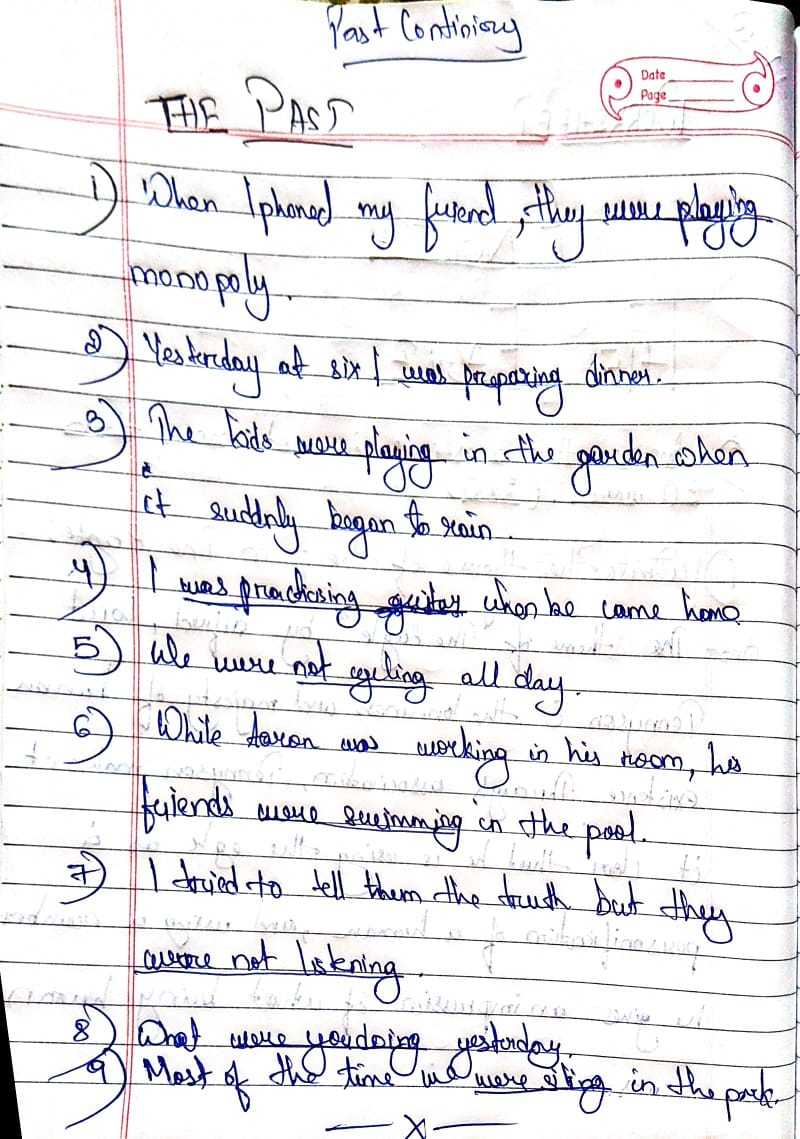 Past Continiouy
THE PAST
Date
Page
1) When I phoned my friend, they were playing
monopoly.
2) Yesterday at six I was preparing dinner.
3) The kids were playing in the garden when
it suddnly began to rain.
4) I was practicing guitar when he came home
5) We were not cycling all day.
6) While Aaron was working in his room, his
friends were swimming in the pool.
7) I tried to tell them the truth but they
were not listening.
8) What were you doing yesterday.
9) Most of the time we were siting in the park.
X